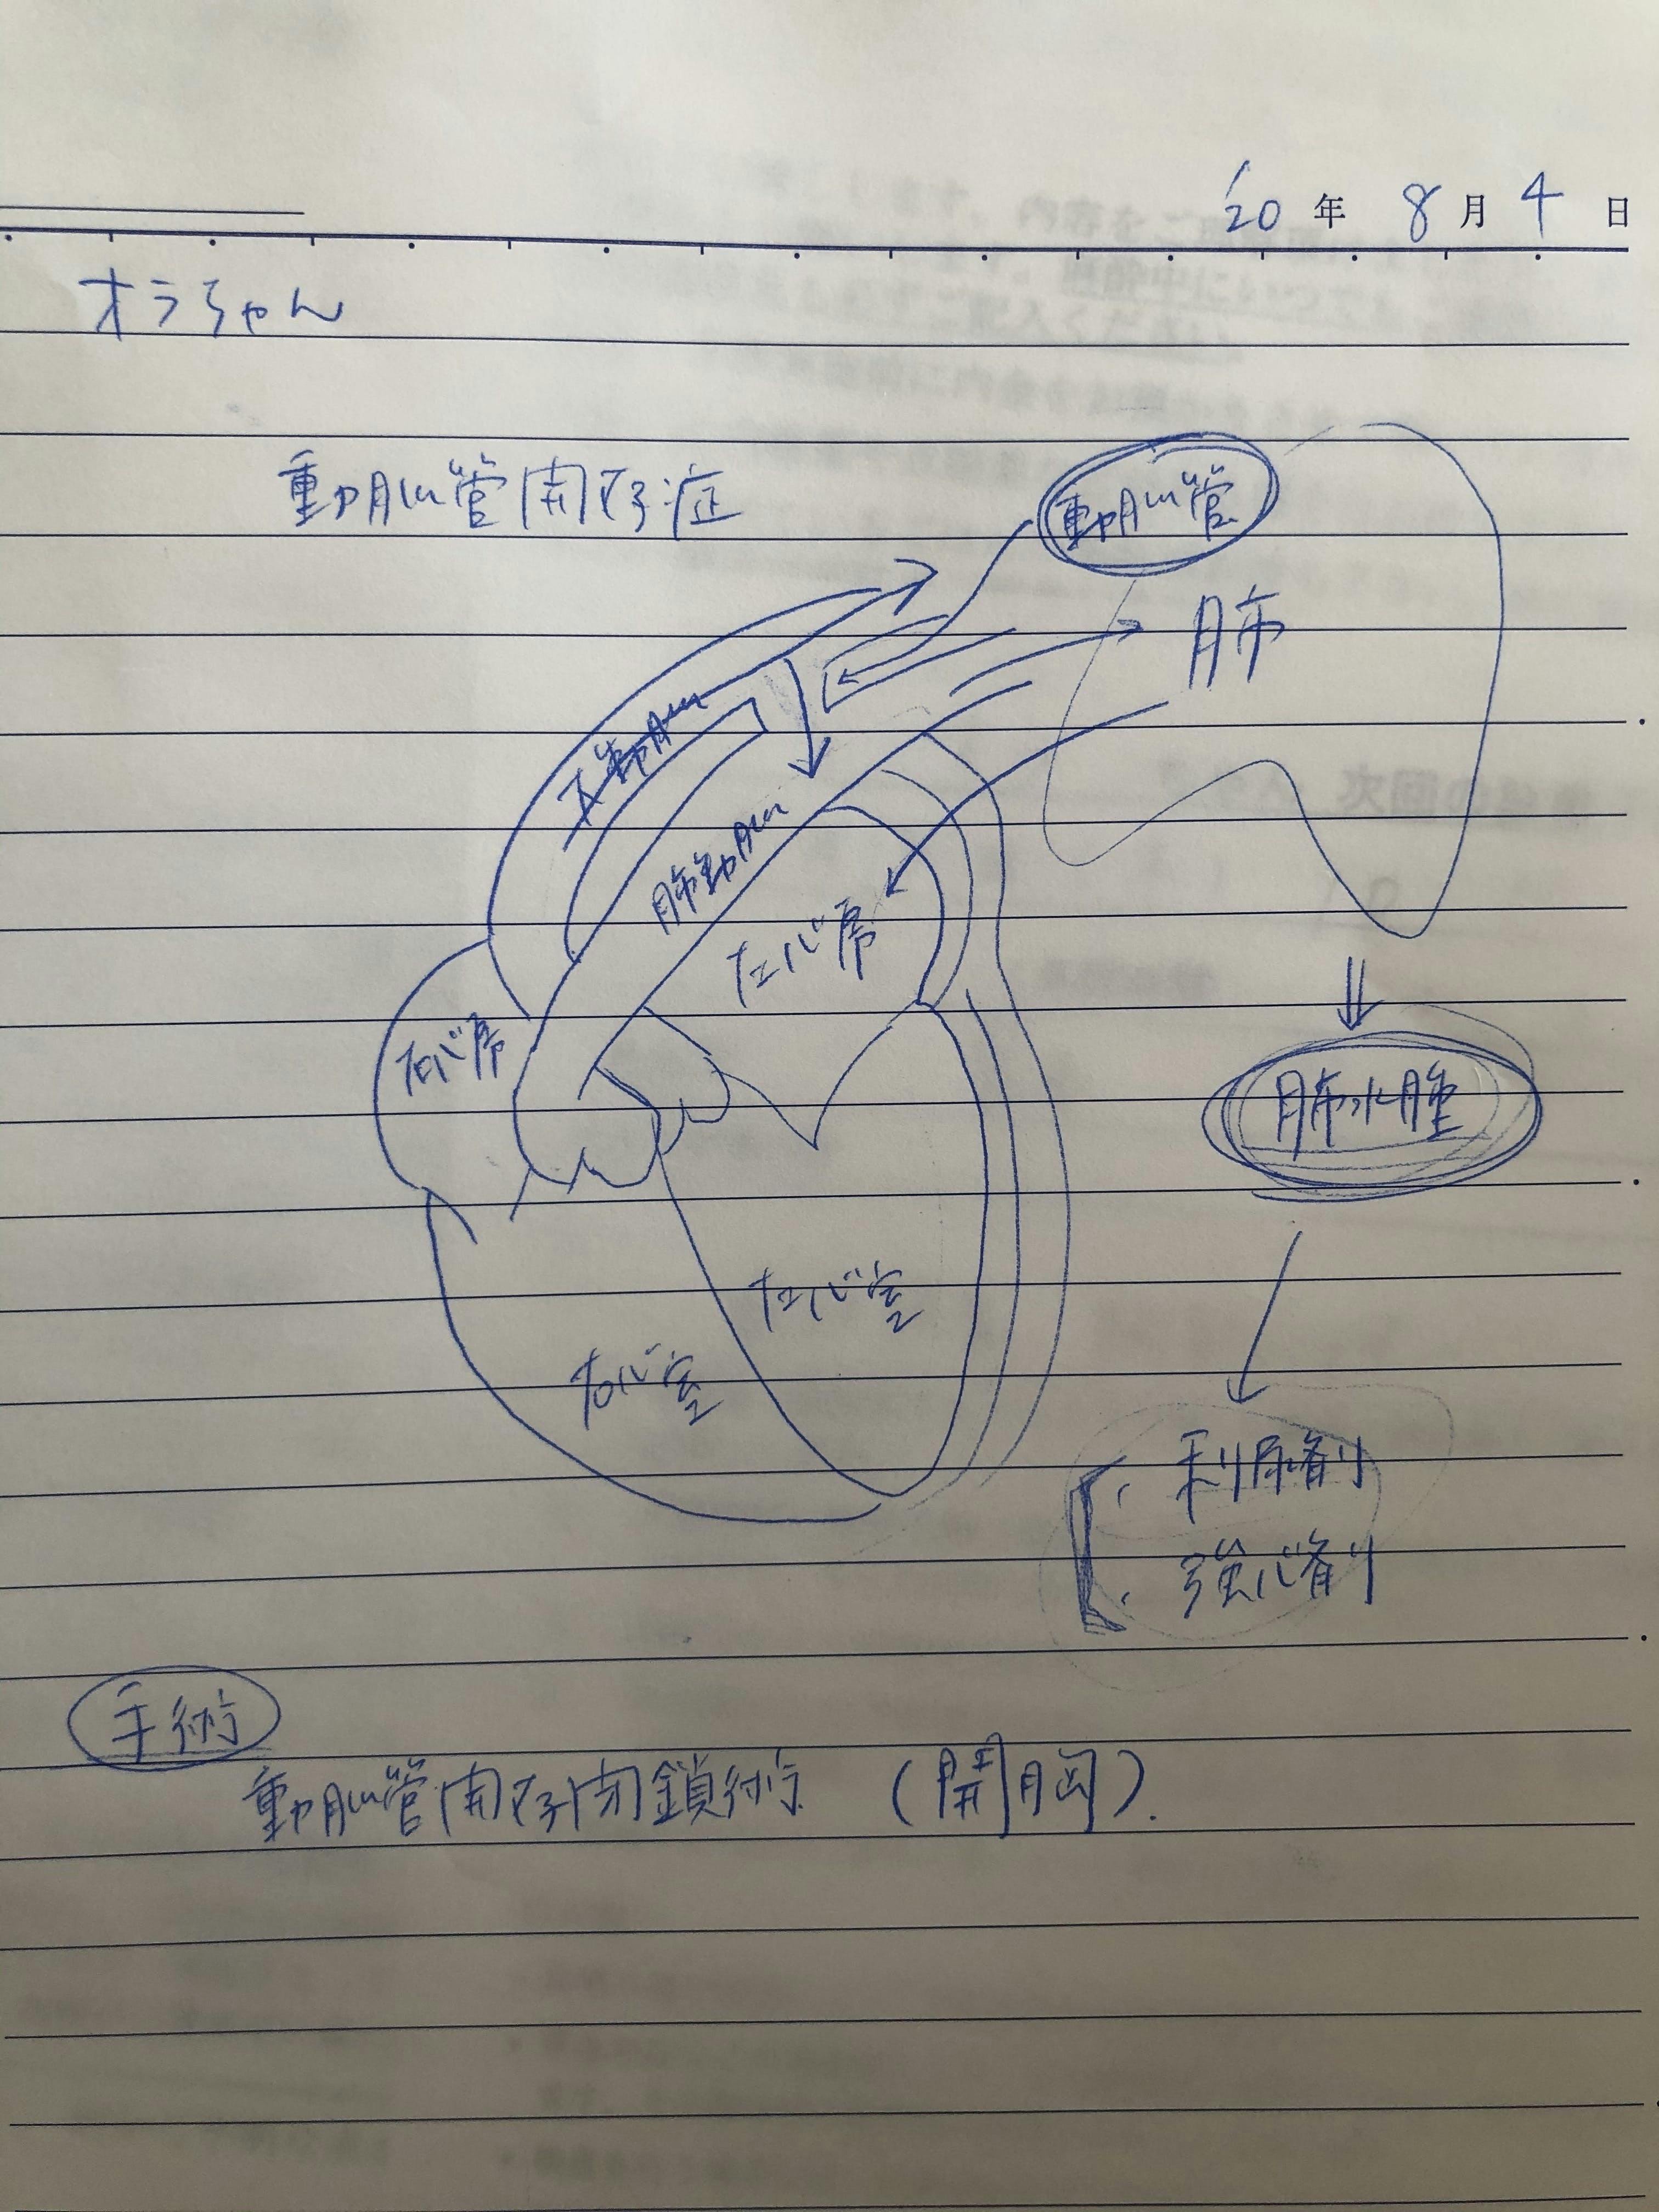 '20 年 8 月 4 日
オラちゃん
動脈管開存症
動脈管
肺
大動脈
肺動脈
左心房
右心房
肺水腫
左心室
右心室
・利尿剤
・強心剤
手術
動脈管開存閉鎖術 (開胸).